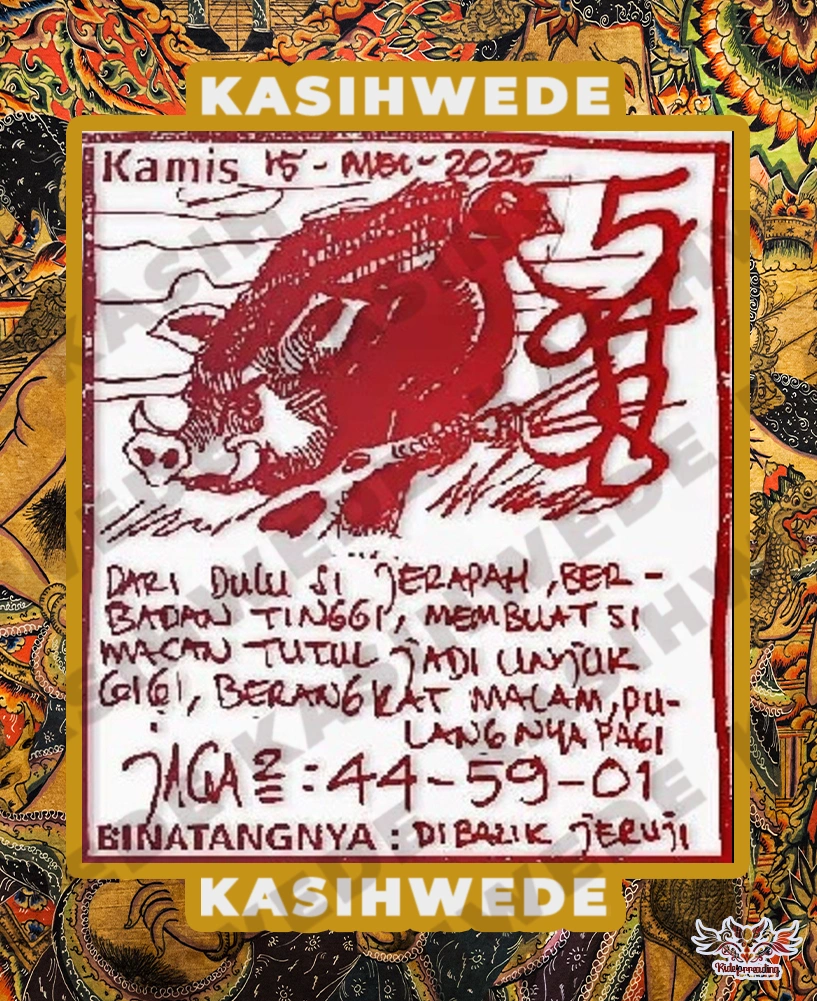 KASIHWEDE
Kamis 15 - MEI - 2025
5
DARI DULU SI JERAPAH, BER-
BADAN TINGGI, MEMBUAT SI
MACAN TUTUL JADI UNJUK
GIGI, BERANGKAT MALAM, PU-
LANGNYA PAGI
JAGA2 : 44-59-01
BINATANGNYA : DIBALIK JERUJI
KASIHWEDE